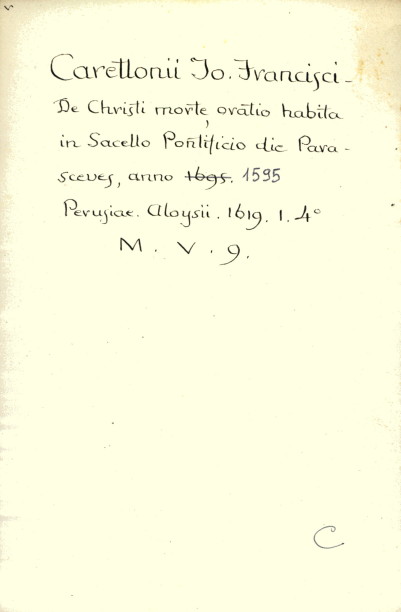 Carettonii Jo. Francisci -
De Christi morte, oratio habita
in Sacello Pontificio die Para -
sceves, anno 1695. 1595
Perusiae. Aloysii. 1619. 1. 4°
M. V. 9.
C